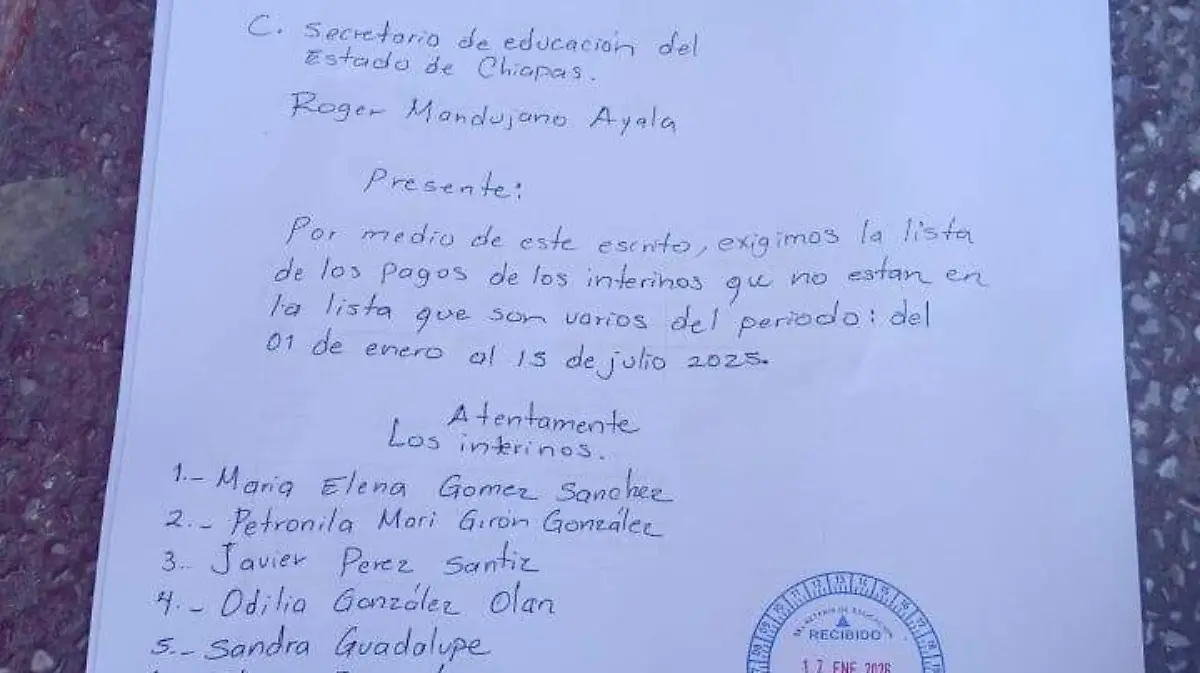 C. Secretario de educación del
Estado de Chiapas.
Roger Mandujano Ayala
Presente:
Por medio de este escrito, exigimos la lista
de los pagos de los interinos qu no estan en
la lista que son varios del periodo: del
01 de enero al 15 de julio 2025.
Atentamente
Los interinos.
1.- Maria Elena Gomez Sanchez
2.- Petronila Mari Girón González
3.- Javier Perez Santiz
4.- Odilia González Olan
5.- Sandra Guadalupe
RECIBIDO
17 ENE 2026